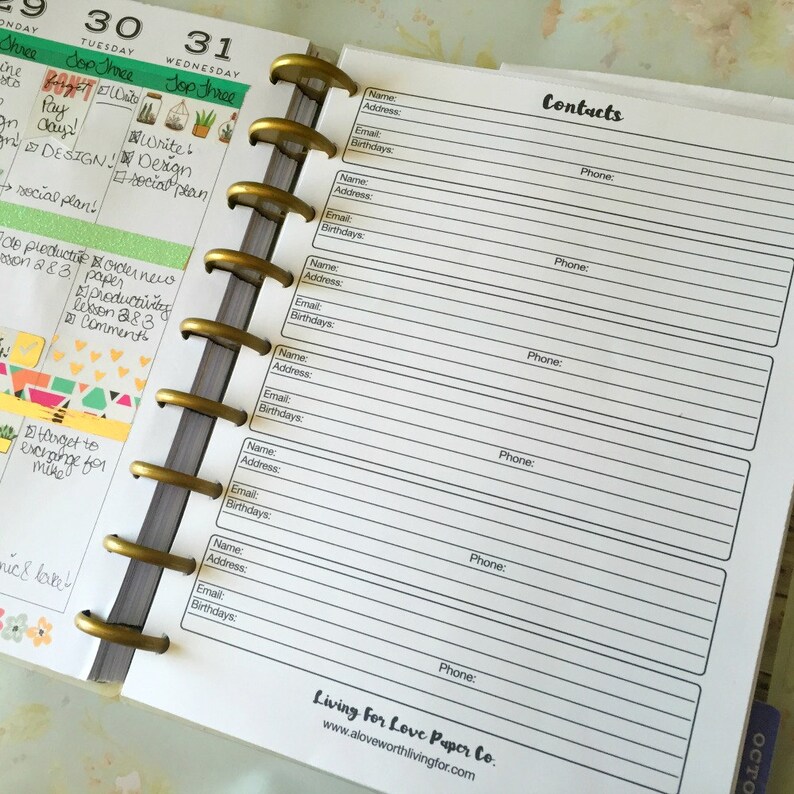 29
30
31
TUESDAY
WEDNESDAY
Three
Top Three
Top Three
DON'T
forget
Pay
Day!
DESIGN!
social plan!
Write
Write!
Design
social plan
lesson 2 & 3
order new
paper
productivity
lesson 2 & 3
comments
target to
exchange for
mike
Contacts
Name:
Address:
Phone:
Email:
Birthdays:
Name:
Address:
Phone:
Email:
Birthdays:
Name:
Address:
Phone:
Email:
Birthdays:
Name:
Address:
Phone:
Email:
Birthdays:
Name:
Address:
Phone:
Email:
Birthdays:
Name:
Address:
Phone:
Email:
Birthdays:
Living For Love Paper Co.
www.aloveworthlivingfor.com
OCTO